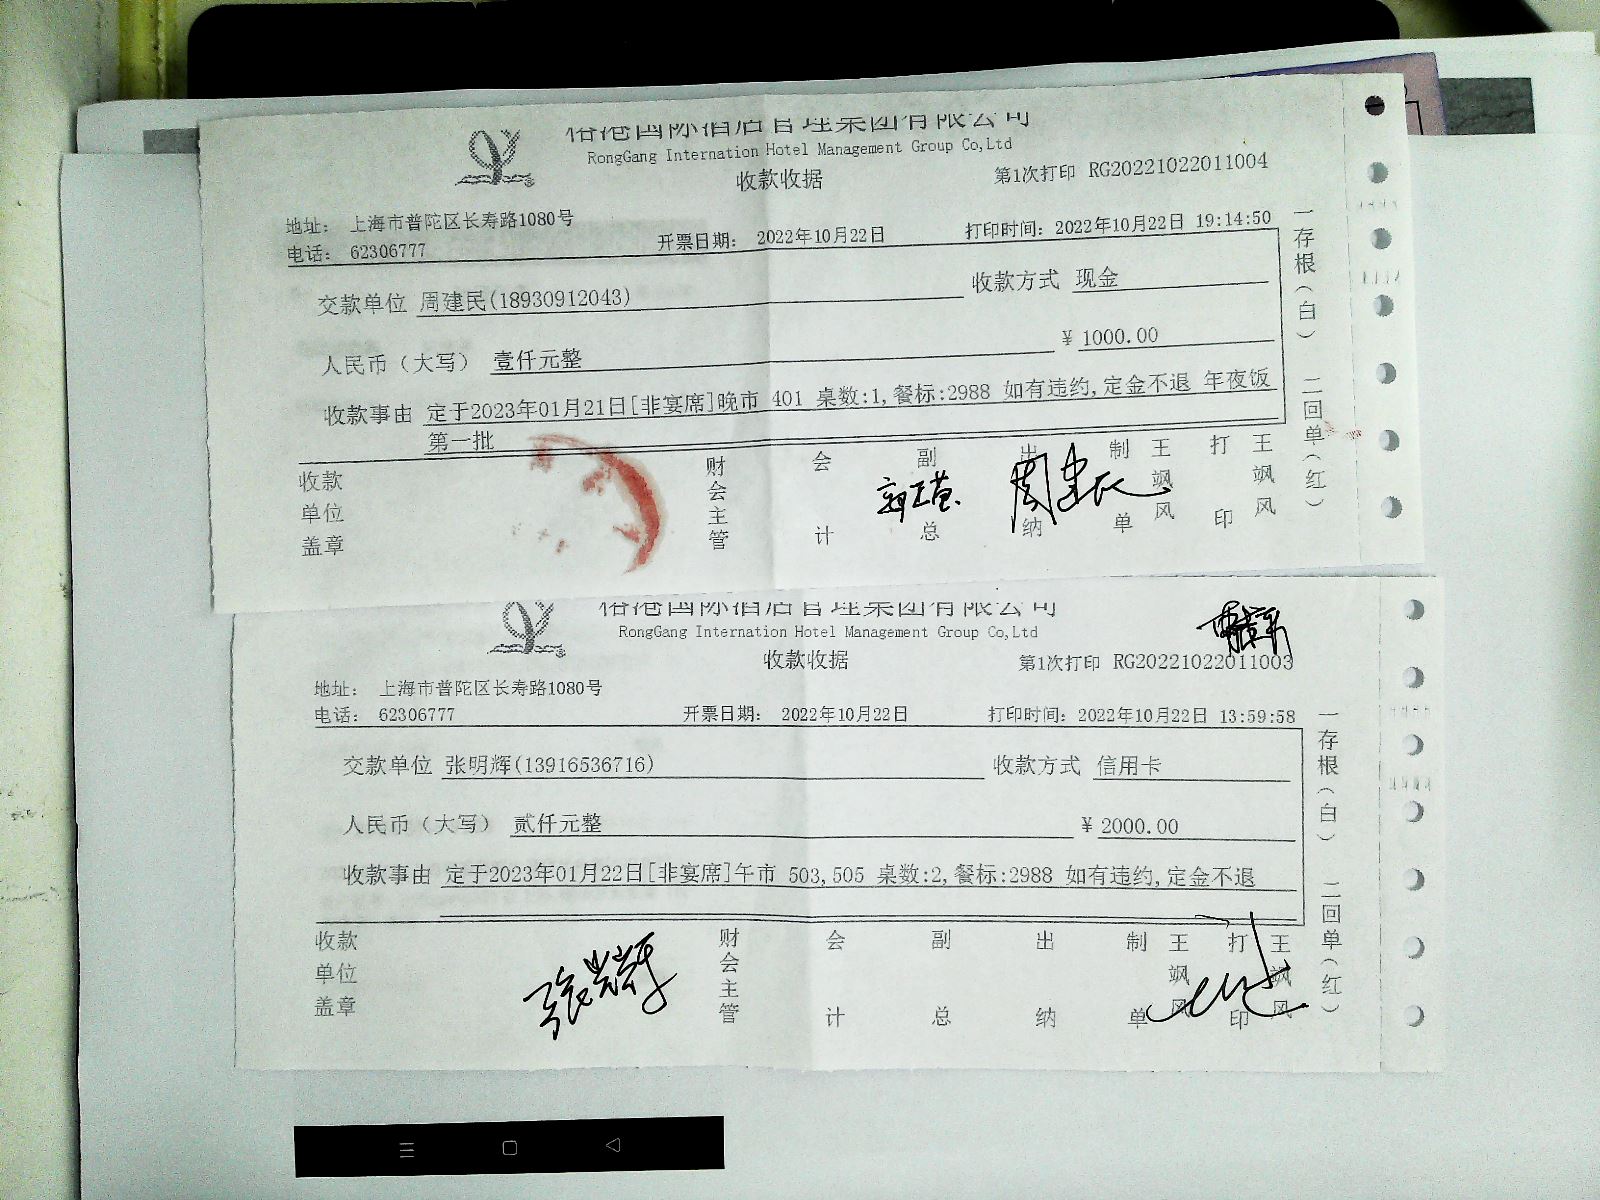 榕港国际酒店管理集团有限公司
RongGang Internation Hotel Management Group Co,Ltd
收款收据
第1次打印 RG20221022011004
地址： 上海市普陀区长寿路1080号
电话： 62306777
开票日期： 2022年10月22日
打印时间：2022年10月22日 19:14:50
交款单位 周建民(18930912043)
收款方式 现金
人民币（大写） 壹仟元整
¥ 1000.00
收款事由 定于2023年01月21日[非宴席]晚市 401 桌数:1,餐标:2988 如有违约,定金不退 年夜饭
第一批
收款单位盖章
财会主管
会计
副总
出纳
周建民
制单
王飒风
打印
王飒风
一存根（白） 二回单（红）
榕港国际酒店管理集团有限公司
RongGang Internation Hotel Management Group Co,Ltd
收款收据
第1次打印 RG20221022011003
地址： 上海市普陀区长寿路1080号
电话： 62306777
开票日期： 2022年10月22日
打印时间：2022年10月22日 13:59:58
交款单位 张明辉(13916536716)
收款方式 信用卡
人民币（大写） 贰仟元整
¥ 2000.00
收款事由 定于2023年01月22日[非宴席]午市 503,505 桌数:2,餐标:2988 如有违约,定金不退
收款单位盖章
财会主管
会计
副总
出纳
制单
王飒风
打印
王飒风
一存根（白） 二回单（红）